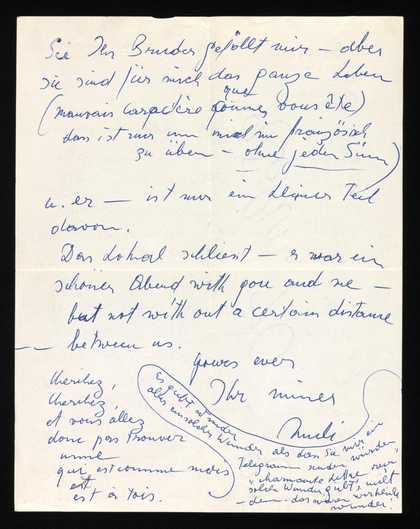 Sie Ihr Bruder gefällt mir – aber
sie sind für mich das ganze Leben
(mauvais caractère que vous ête)
das ist nur um mich im französisch
zu üben – ohne jeden Sinn)
u. er — ist nur ein kleiner Teil
davon.
Das Lokal schliest – es war ein
schöner Abend with you and me –
but not with out a certain distance
between us.
yours ever
Ihr
Cherchez,
Cherchez,
et vous allez
donc pas trouver
une
qui est comme mois
est
est à tois.
Es gibt Wunder
aber ein solches Wunder als dass Sie mir ein
Telegramm senden würden
"charmante Lettre
solche Wunder gibt's nicht
– denn das wären wirkliche
Wunder!